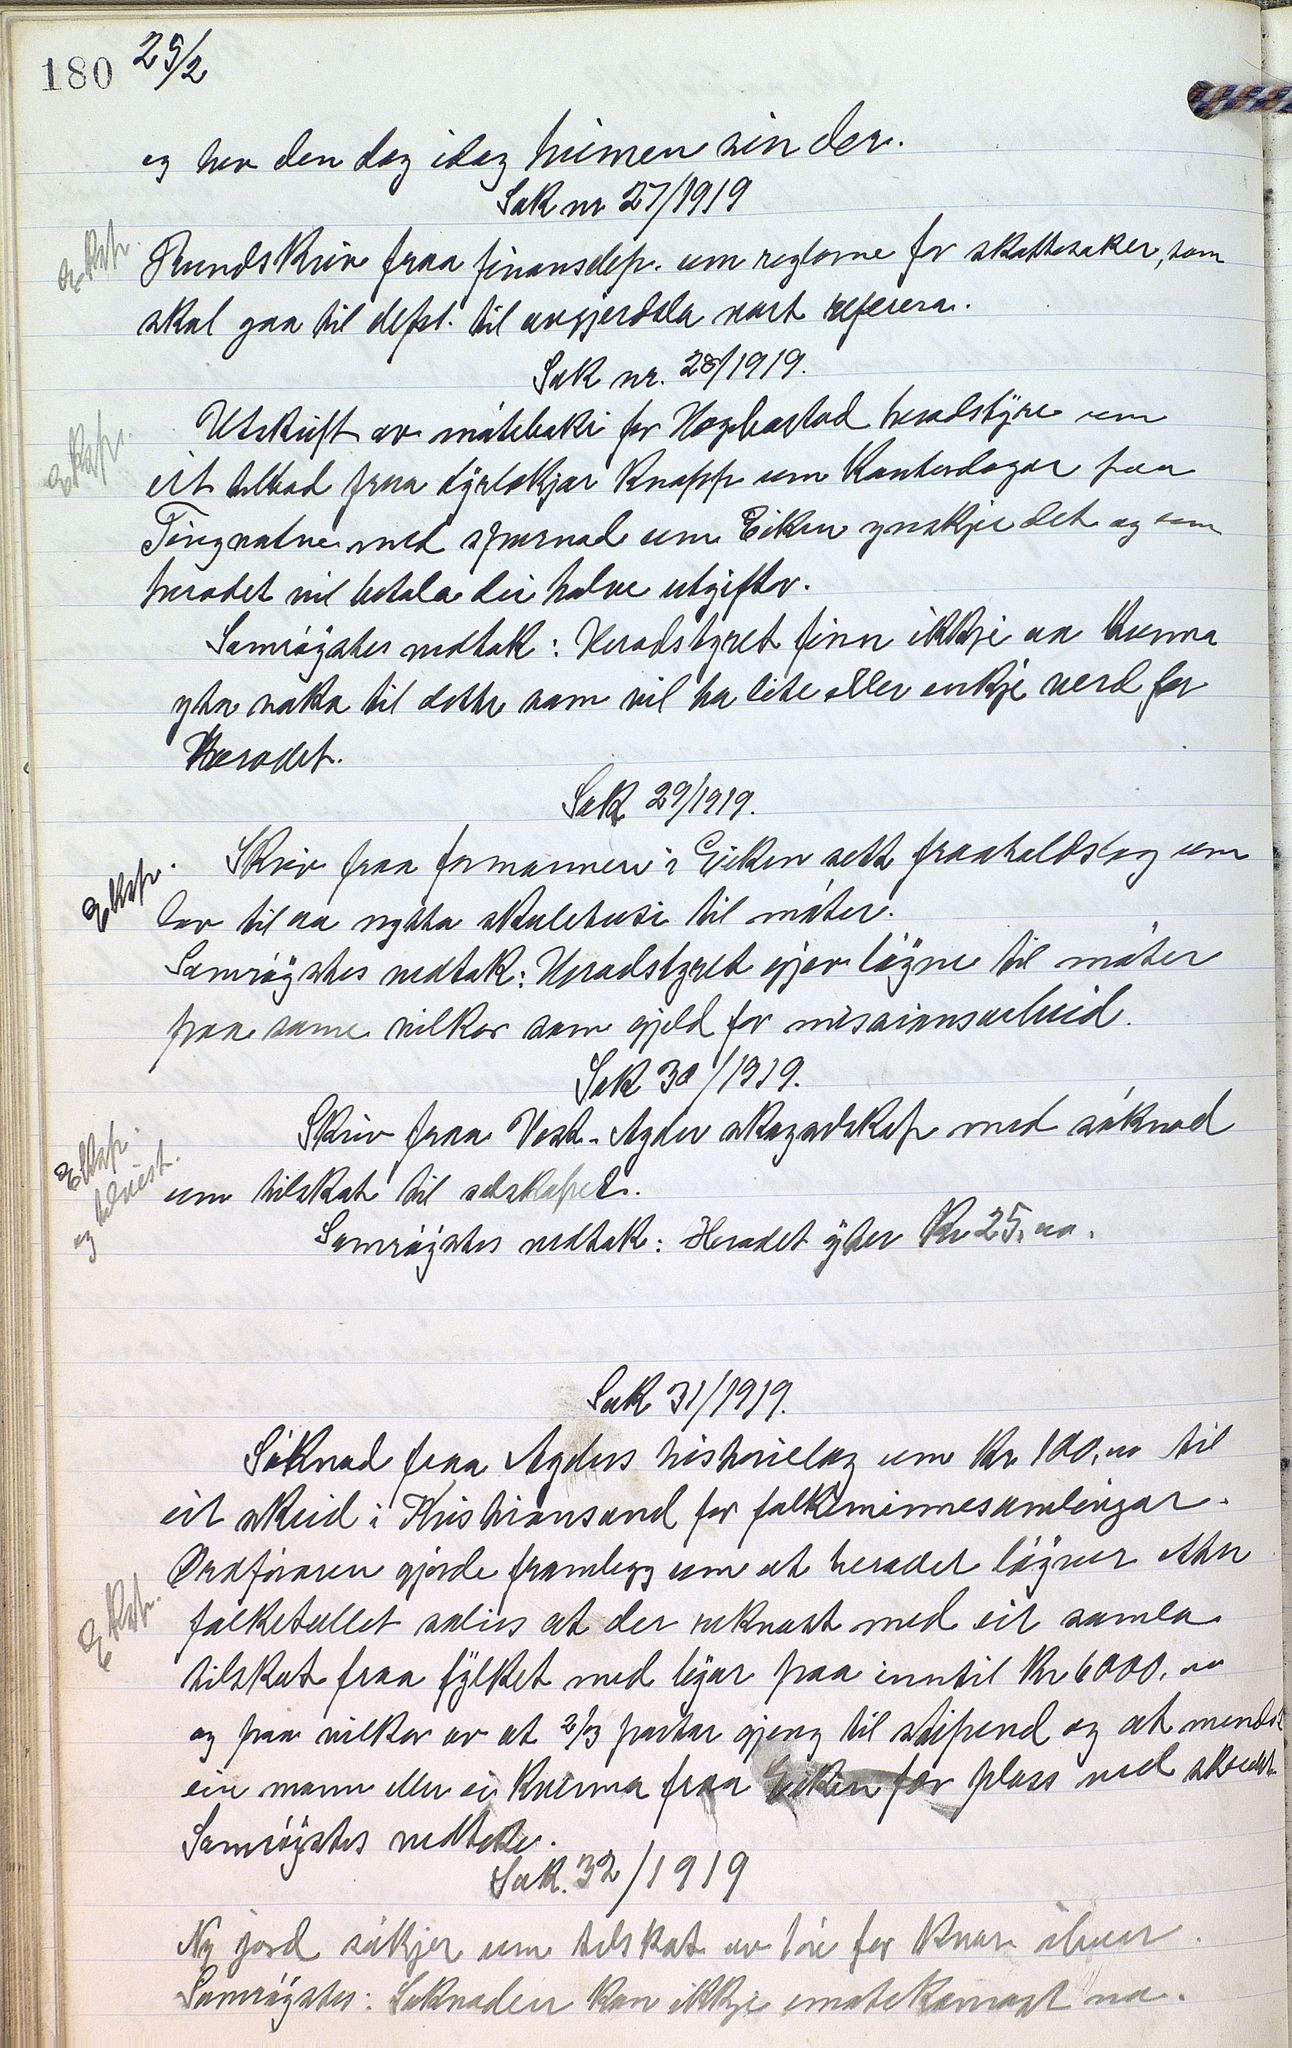 180 25/2
og hev den dag idag heimen sin der.
Sak nr 27/1919
Ekspr.
Rundskriv fraa finansdep. um reglorne for skattesaker, som
skal gaa til dept. til avgjerdsla vart referera.
Sak nr. 28/1919.
Ekspr.
Utskrift av møteboki for Hægebostad heradstyre um
eit tilbod fraa dyrlækjar Knapp um Kontordagar paa
Tingvatne med spurnad um Eiken ynskjer det og um
heradet vil betala dei halve utgifter.
Samrøystes vedtak: Heradstyret finn ikkje aa kunna
yta noko til dette som vil ha lite eller inkje verd for
Heradet.
Sak 29/1919.
Ekspr.
Skriv fraa formannen i Eiken sett fraahaldslag um
lov til aa nytta skulehusi til møter.
Samrøystes vedtak: Heradstyret gjev løyve til møter
paa same vilkor som gjeld for missionsarbeid.
Sak 30/1919.
Ekspr.
og tilvist.
Skriv fraa Vest-Agder skogselskap med søknad
um tilskot til selskapet.
Samrøystes vedtak: Heradet yter Kr 25,00.
Sak 31/1919.
Søknad fraa Agders historielag um Kr. 100,00 til
eit skeid i Kristiansand for folkeminnesamlingar.
Ordføraren gjorde framlegg um at heradet løyver etter
Ekspr.
folketallet soleis at der reknast med eit samla
tilskot fraa fylket med byar paa inntil Kr 6000,00
og paa vilkor av at 2/3 partar gjeng til stipend og at mendst
ein mann eller ei kvinna fraa Eiken faar plass ved skeidet.
Samrøystes vedteke.
Sak. 32/1919
Ny jord søkjer um tilskot av for
Samrøystes: Søknaden kan ikkje imøtekomast no.